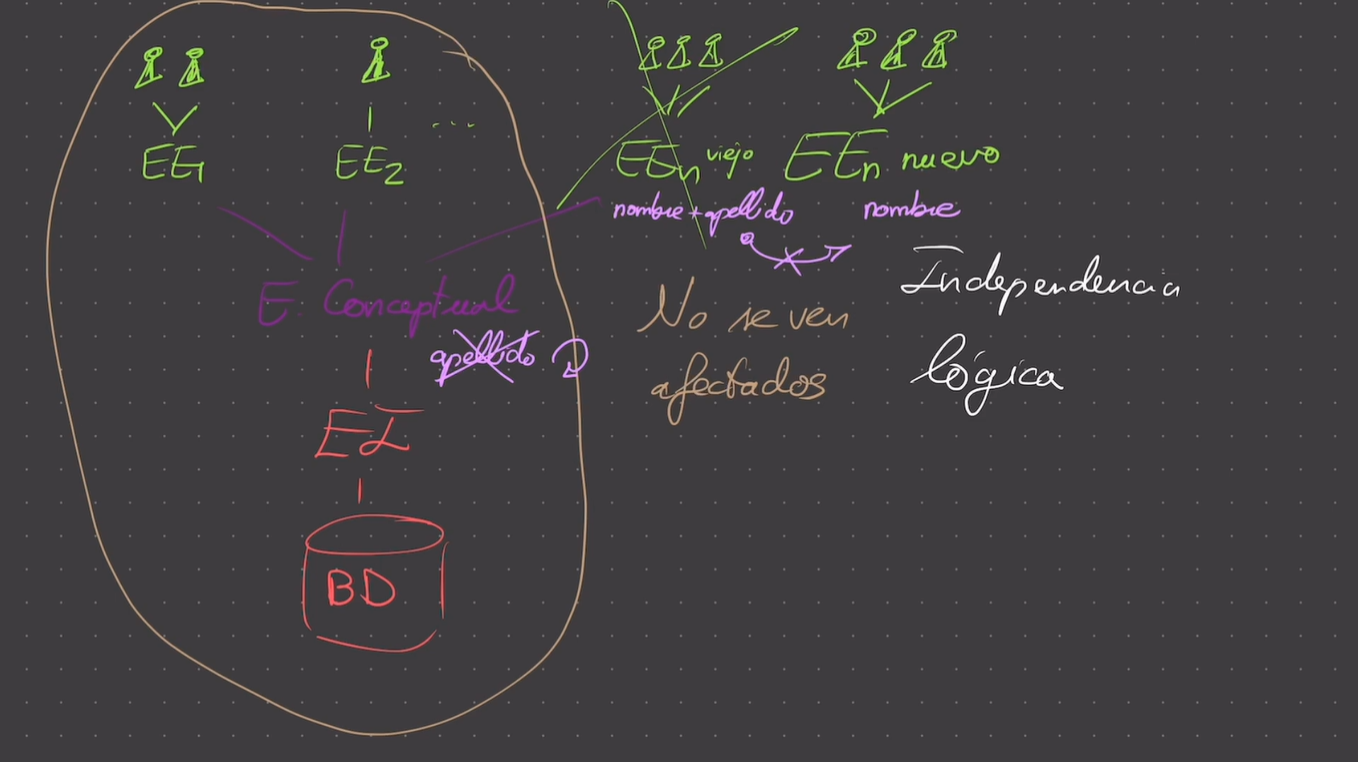 EE1
EE2
...
EEn viejo
EEn nuevo
nombre + apellido
nombre
E. Conceptual
apellido
No se ven
afectados
Independencia
lógica
EI
BD